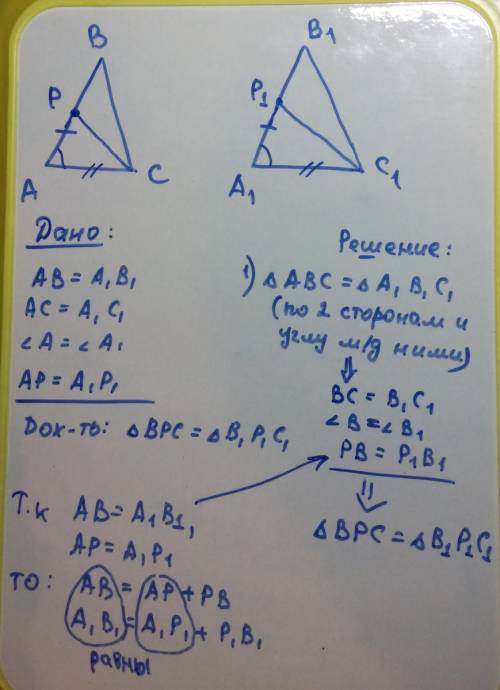 B
P
A
C
B1
P1
A1
C1
Дано:
AB = A1B1
AC = A1C1
∠A = ∠A1
AP = A1P1
Док-ть: △BPC = △B1P1C1
Решение:
1) △ABC = △A1B1C1
(по 2 сторонам и
углу м/д ними)
⇓
BC = B1C1
∠B = ∠B1
PB = P1B1
⇓
△BPC = △B1P1C1
Т.к AB = A1B1,
AP = A1P1
то: AB = AP + PB
A1B1 = A1P1 + P1B1
равны